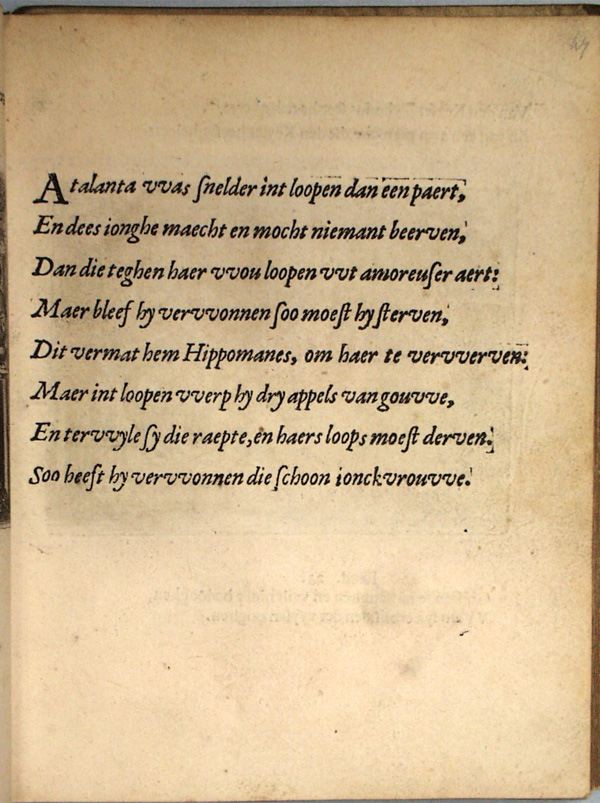 Atalanta vvas ſnelder int loopen dan een paert,
En dees ionghe maecht en mocht niemant beerven,
Dan die teghen haer vvou loopen vvt amoreuſer aert:
Maer bleef hy vervvonnen ſoo moeſt hy ſterven,
Dit vermat hem Hippomanes, om haer te vervverven:
Maer int loopen vverp hy dry appels van gouvve,
En tervvyle ſy die raepte, en haers loops moeſt derven.
Soo heeft hy vervvonnen die ſchoon ionckvrouvve.